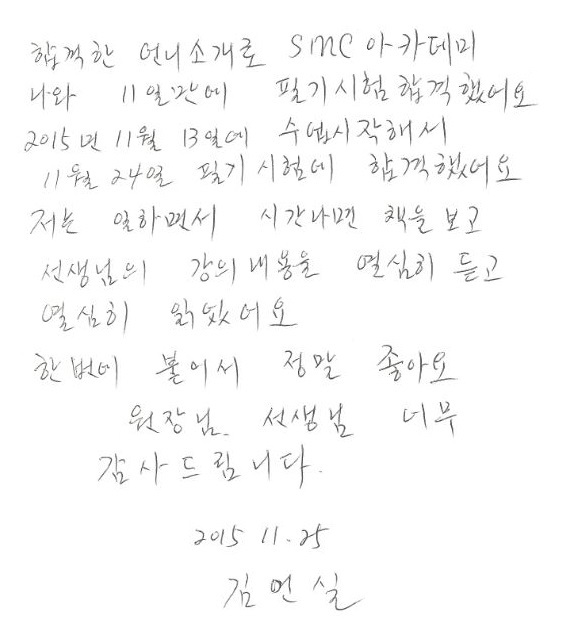 합격한 언니소개로 SMC아카데미
나와 11일만에 필기시험합격했어요
2015년 11월 13일에 수업시작해서
11월 24일 필기시험에 합격했어요
저는 일하면서 시간나면 책을 보고
선생님의 강의내용을 열심히 듣고
열심히 읽었어요
한번에 붙어서 정말 좋아요
원장님. 선생님 너무
감사드립니다.
2015 11.25
김언실